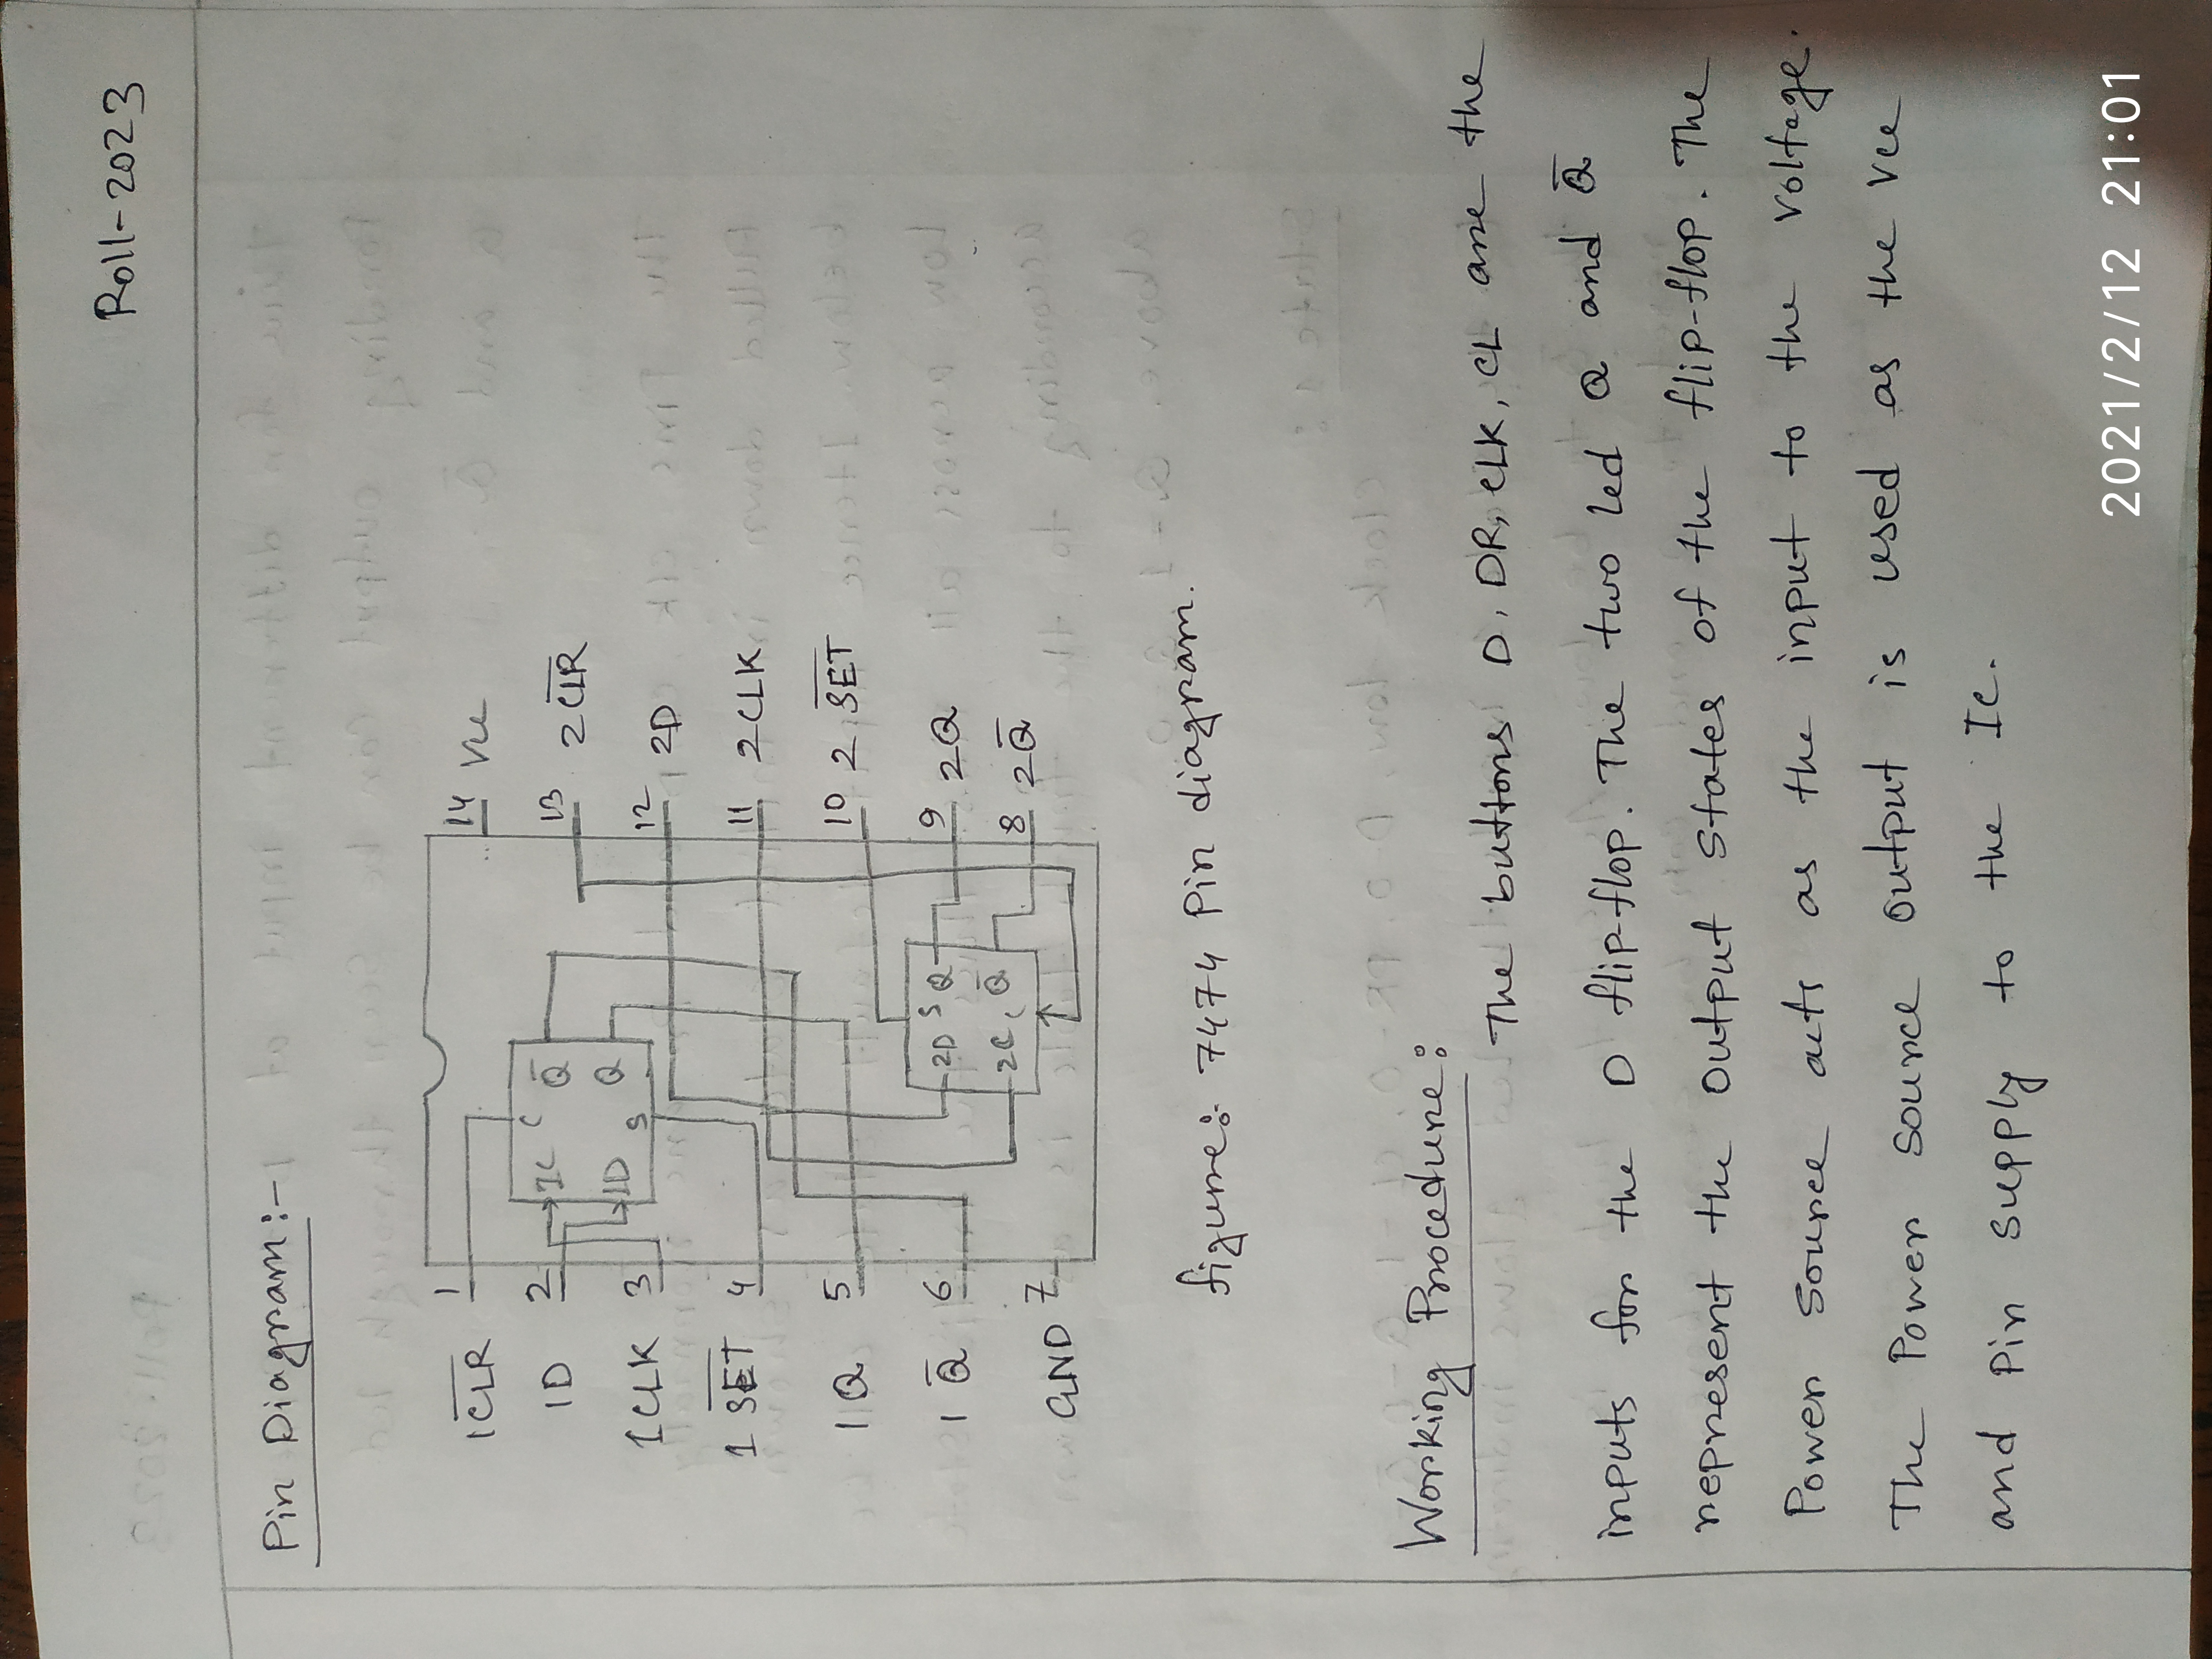 Roll-2023
Pin Diagram:-
1C̅L̅R̅ 1 14 Vcc
1D 2 IC C Q̅ 13 2C̅L̅R̅
1D Q
1CLK 3 S 12 2D
1 S̅E̅T̅ 4 11 2CLK
1Q 5 10 2 S̅E̅T̅
1 Q̅ 6 2D S Q 9 2Q
2C C Q̅ 8 2Q̅
GND 7
figure:- 7474 Pin diagram.
Working Procedure:
The buttons D, DR, CLK, CL are the
inputs for the D flip-flop. The two led Q and Q̅
represent the output states of the flip-flop. The
Power source acts as the input to the voltage.
The Power source output is used as the Vcc
and Pin supply to the IC.
2021/2/12 21:01